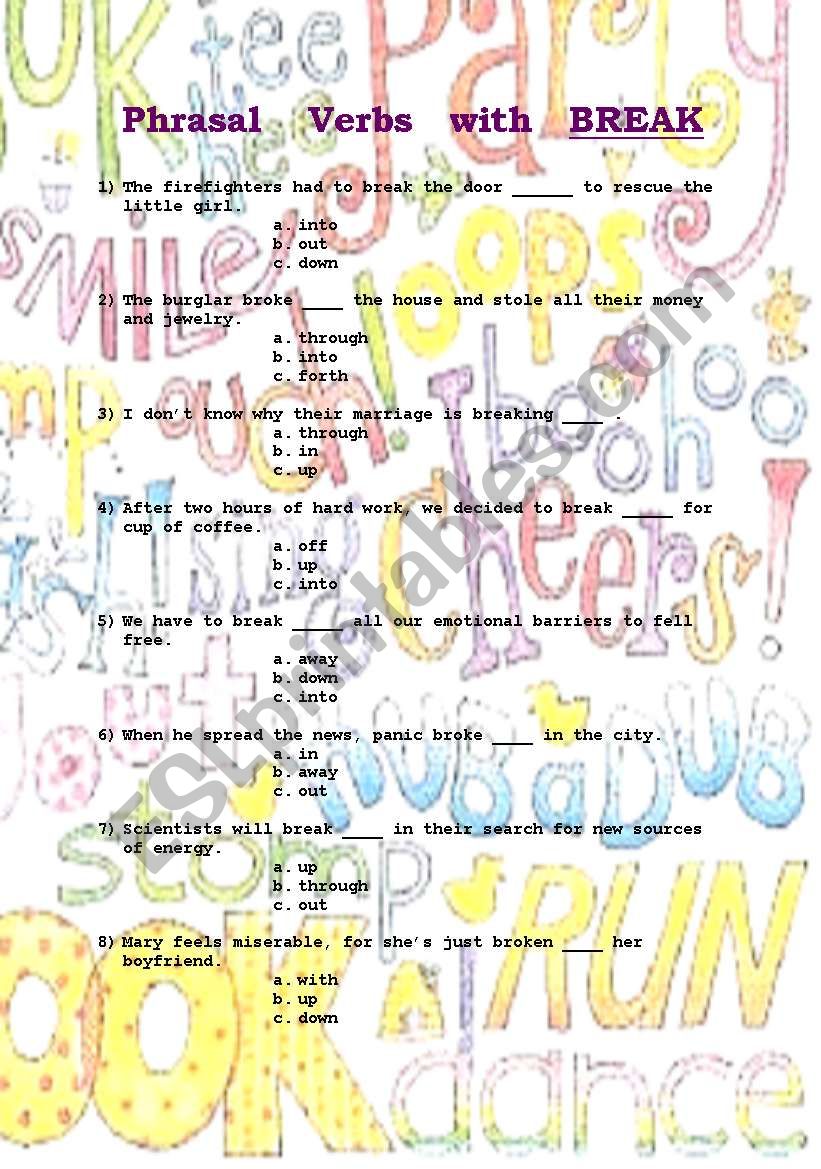 Phrasal Verbs with BREAK
1) The firefighters had to break the door ______ to rescue the
little girl.
a. into
b. out
c. down
2) The burglar broke ____ the house and stole all their money
and jewelry.
a. through
b. into
c. forth
3) I don't know why their marriage is breaking ____ .
a. through
b. in
c. up
4) After two hours of hard work, we decided to break _____ for
cup of coffee.
a. off
b. up
c. into
5) We have to break _____ all our emotional barriers to fell
free.
a. away
b. down
c. into
6) When he spread the news, panic broke ____ in the city.
a. in
b. away
c. out
7) Scientists will break ____ in their search for new sources
of energy.
a. up
b. through
c. out
8) Mary feels miserable, for she's just broken ____ her
boyfriend.
a. with
b. up
c. down
ESLprintables.com
OOK
tee
hee
Party
SMILE
oops
ouch!
boo hoo
Cheers!
sing
RUB a DUB
stomp
RUN
OOK
dance